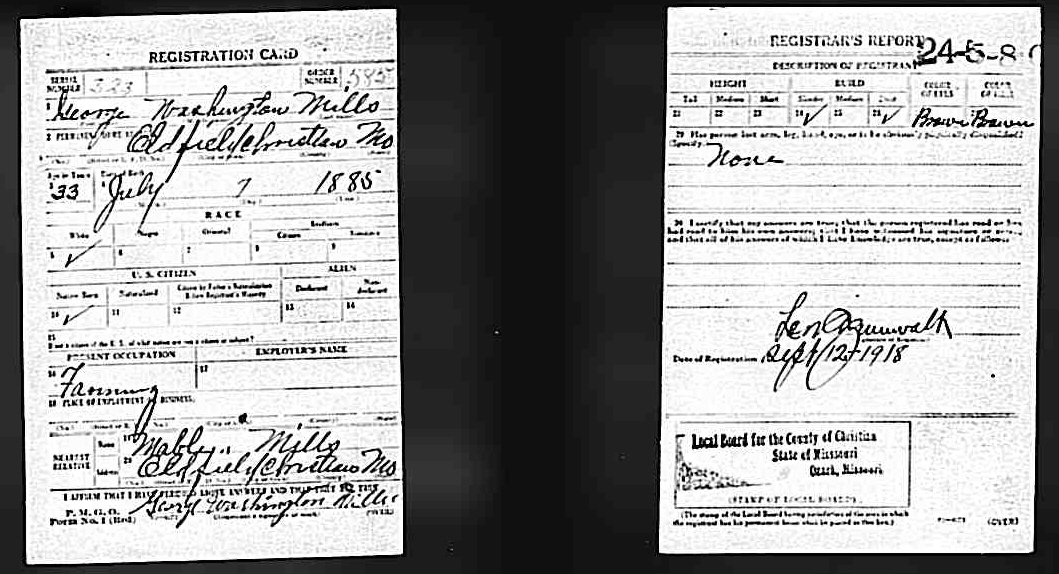 REGISTRATION CARD
SERIAL NUMBER 323 ORDER NUMBER 585
1 George Washington Mills
2 PERMANENT HOME
Oldfield Christian Mo
Age in Years Date of Birth
33 July 7 1885
RACE
White Negro Oriental Indian
Citizen
5 ✓ 6 7 8 9
U. S. CITIZEN ALIEN
Native Born Naturalized Citizen by Father's Naturalization Before Registrant's Majority Declarant Non-declarant
10 ✓ 11 12 13 14
15
If not a citizen of the U. S., of what nation are you a citizen or subject?
PRESENT OCCUPATION EMPLOYER'S NAME
16 Farming 17
18 PLACE OF EMPLOYMENT OR BUSINESS:
NEAREST RELATIVE
Name 19 Mills
Address 20 Oldfield Christian Mo
I AFFIRM THAT I HAVE VERIFIED ABOVE ANSWERS AND THAT THEY ARE TRUE
P. M. G. O.
Form No. 1 (Red) Washington Mills (OVER)
REGISTRAR'S REPORT 24-5-8
DESCRIPTION OF REGISTRANT
HEIGHT BUILD COLOR OF EYES COLOR OF HAIR
Tall Medium Short Slender Medium Stout
21 22 23 24 ✓ 25 26 ✓ Brown Brown
29 Has person lost arm, leg, hand, eye, or is he obviously physically disqualified?
(Specify.) None
30 I certify that my answers are true; that the person registered has read or has
had read to him his own answers; that I have witnessed his signature or mark,
and that all of his answers of which I have knowledge are true, except as follows:
Date of Registration Sept 12-1918
Local Board for the County of Christian
State of Missouri
Ozark, Missouri
(STAMP OF LOCAL BOARD)
(The stamp of the Local Board having jurisdiction of the area in which
the registrant has his permanent home shall be placed in this box.)
(OVER)